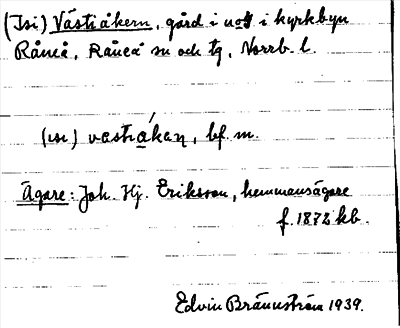 (Isi) Västiåkern, gård i i kyrkbyn
Råneå, Råneå sn och tg, Norrb. l.
(ısı) vastiåkaṇ, bf. m.
Ägare: Joh. Hj. Eriksson, hemmansägare
f. 1872 kb.
Edvin Brännström 1939.